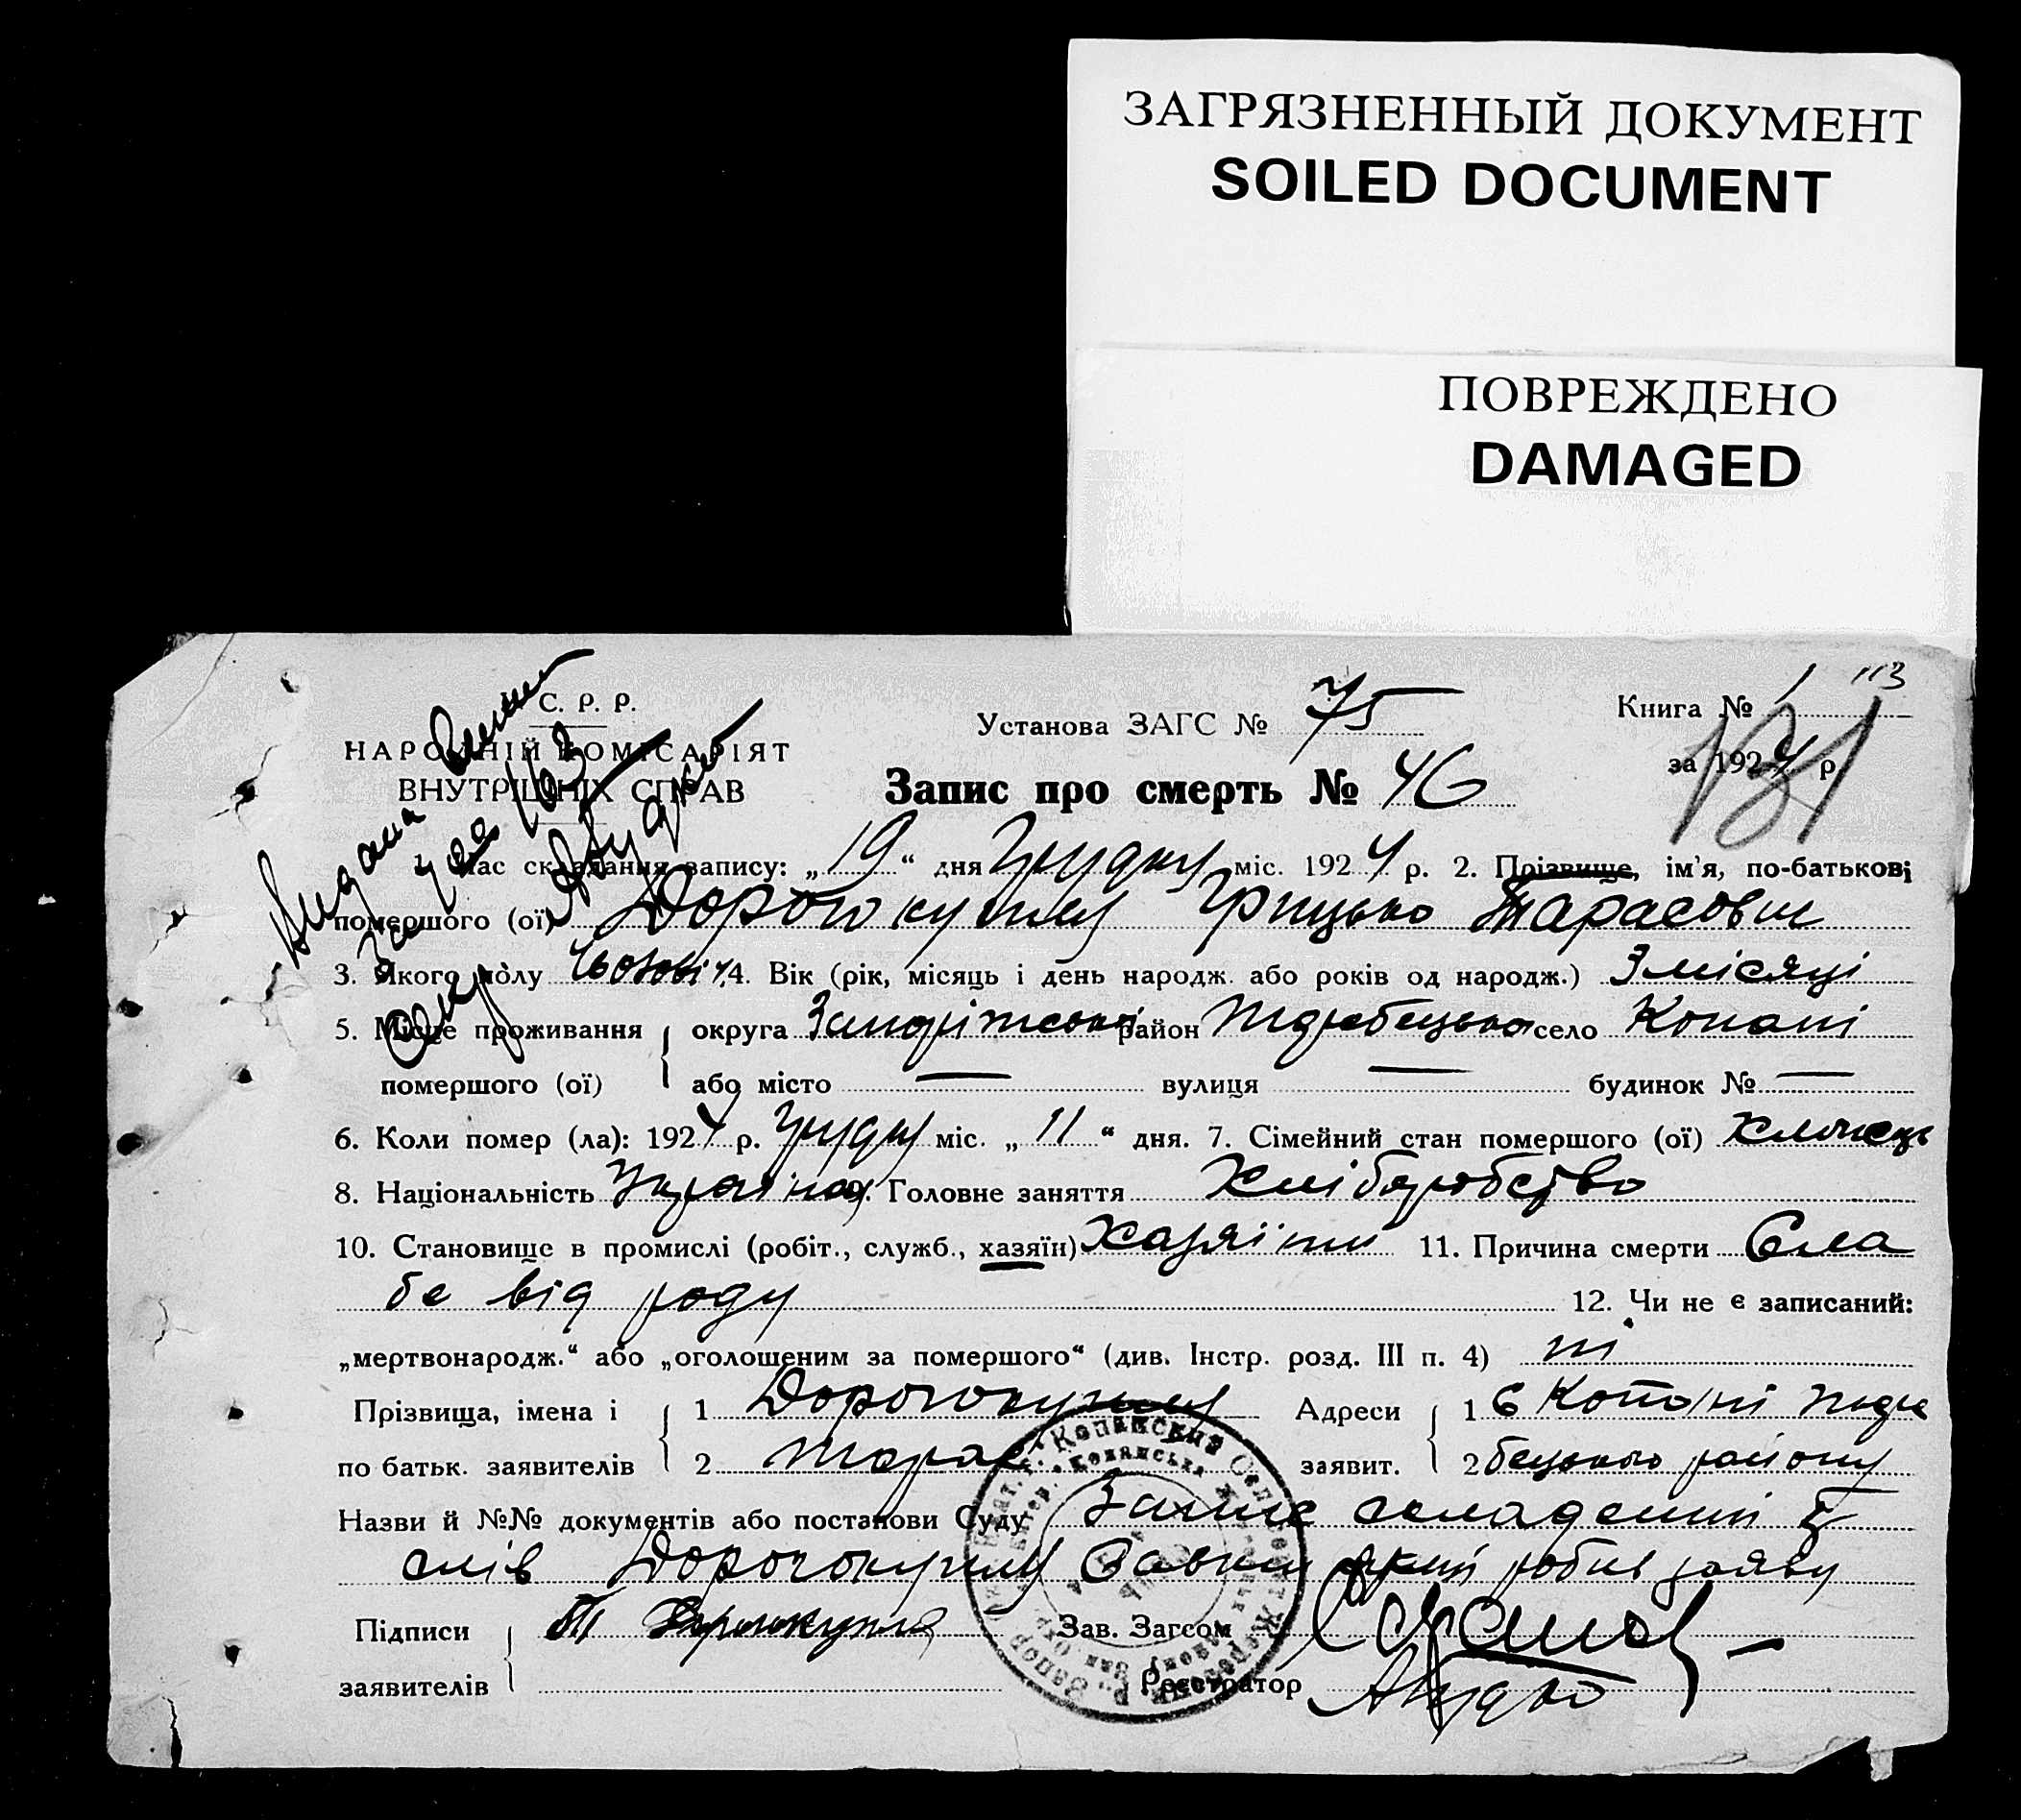 ЗАГРЯЗНЕННЫЙ ДОКУМЕНТ
SOILED DOCUMENT
ПОВРЕЖДЕНО
DAMAGED
113
С. Р. Р.
НАРОДНІЙ КОМІСАРІЯТ
ВНУТРІШНІХ СПРАВ
Установа ЗАГС № 75
Книга № 1
за 1924 р.
131
Запис про смерть № 46
Видана
163
1. Час складання запису: „19“ дня Грудню міс. 1924 р. 2. Прізвище, ім'я, по-батькові
помершого (ої) Дорогокупля Грицько Тарасович
3. Якого полу Чоловіч. 4. Вік (рік, місяць і день народж. або років од народж.) 3 місяці
5. Місце проживання округа Запоріжської район село Копані
помершого (ої) або місто — вулиця — будинок № —
6. Коли помер (ла): 1924 р. Грудню міс. „11“ дня. 7. Сімейний стан помершого (ої) Хлопець
8. Національність 9. Головне заняття Хліборобство
10. Становище в промислі (робіт., служб., хазяїн) Хазяїни 11. Причина смерти Сла
бе від роду 12. Чи не є записаний:
„мертвонародж.“ або „оголошеним за помершого“ (див. Інстр. розд. III п. 4) ні
Прізвища, імена і 1 Дорогокупля Адреси 1 С Копані
по батьк. заявителів 2 Тарас заявит. 2 району
Назви й №№ документів або постанови Суду Запис складений з
слів Дорогокупля робив заяву
Підписи Т Дорогокупля Зав. Загсом
заявителів Реєстратор